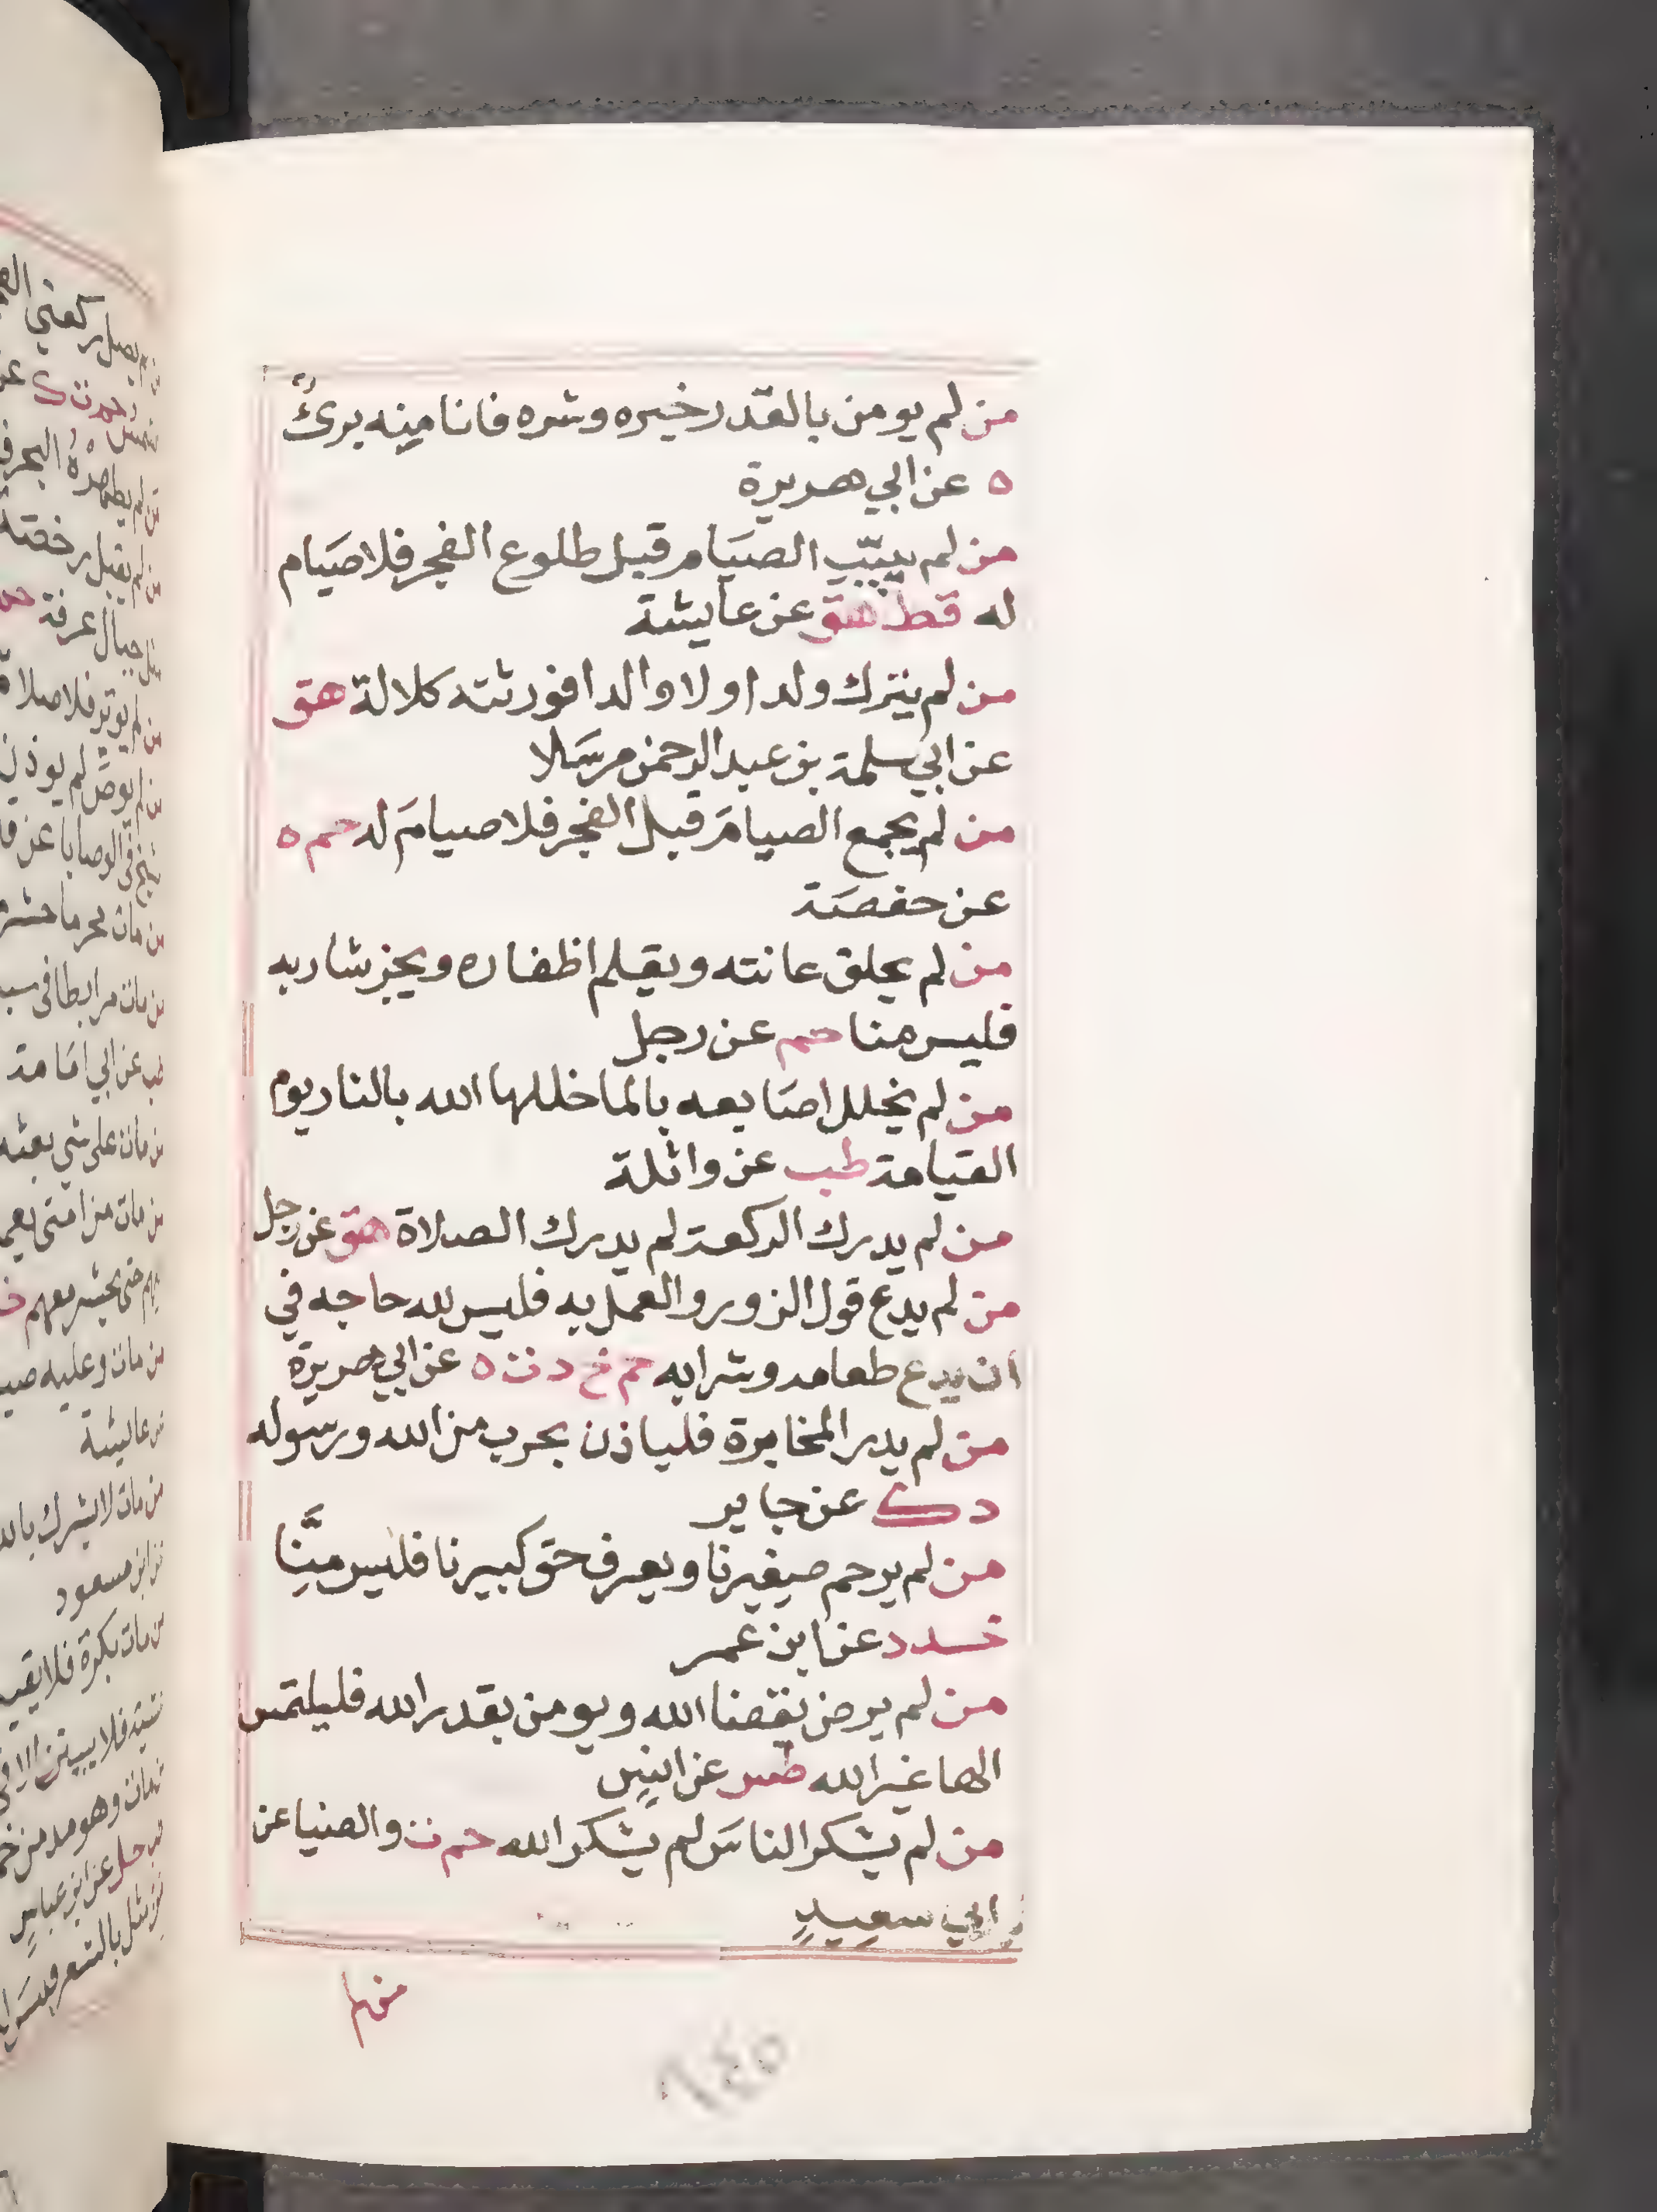 من لم يومن بالقدر خيره وشره فانا منه برئ
ه عن ابي هريرة
من لم يبيّت الصيام قبل طلوع الفجر فلا صيام
له قط هق عن عايشة
من لم يترك ولدا ولا والدا فورثته كلالة هق
عن ابي سلمة بن عبد الرحمن مرسلا
من لم يجمع الصيام قبل الفجر فلا صيام له حم ه
عن حفصة
من لم يحلق عانته ويقلم اظفاره ويجز شاربه
فليس منا حم عن رجل
من لم يخلل اصابعه بالما خللها الله بالنار يوم
القيامة طب عن واثلة
من لم يدرك الركعة لم يدرك الصلاة هق عن رجل
من لم يدع قول الزور والعمل به فليس لله حاجه في
ان يدع طعامه وشرابه حم خ د ت ه عن ابي هريرة
من لم يدر المخابرة فلياذن بحرب من الله ورسوله
د ك عن جابر
من لم يرحم صغيرنا ويعرف حق كبيرنا فليس منَّا
خد د عن ابن عمر
من لم يرض بقضا الله ويومن بقدر الله فليلتمس
الها غير الله طس عن انس
من لم يشكر الناس لم يشكر الله حم ت والضيا عن
ابي سعيد
من لم
٦٤٥